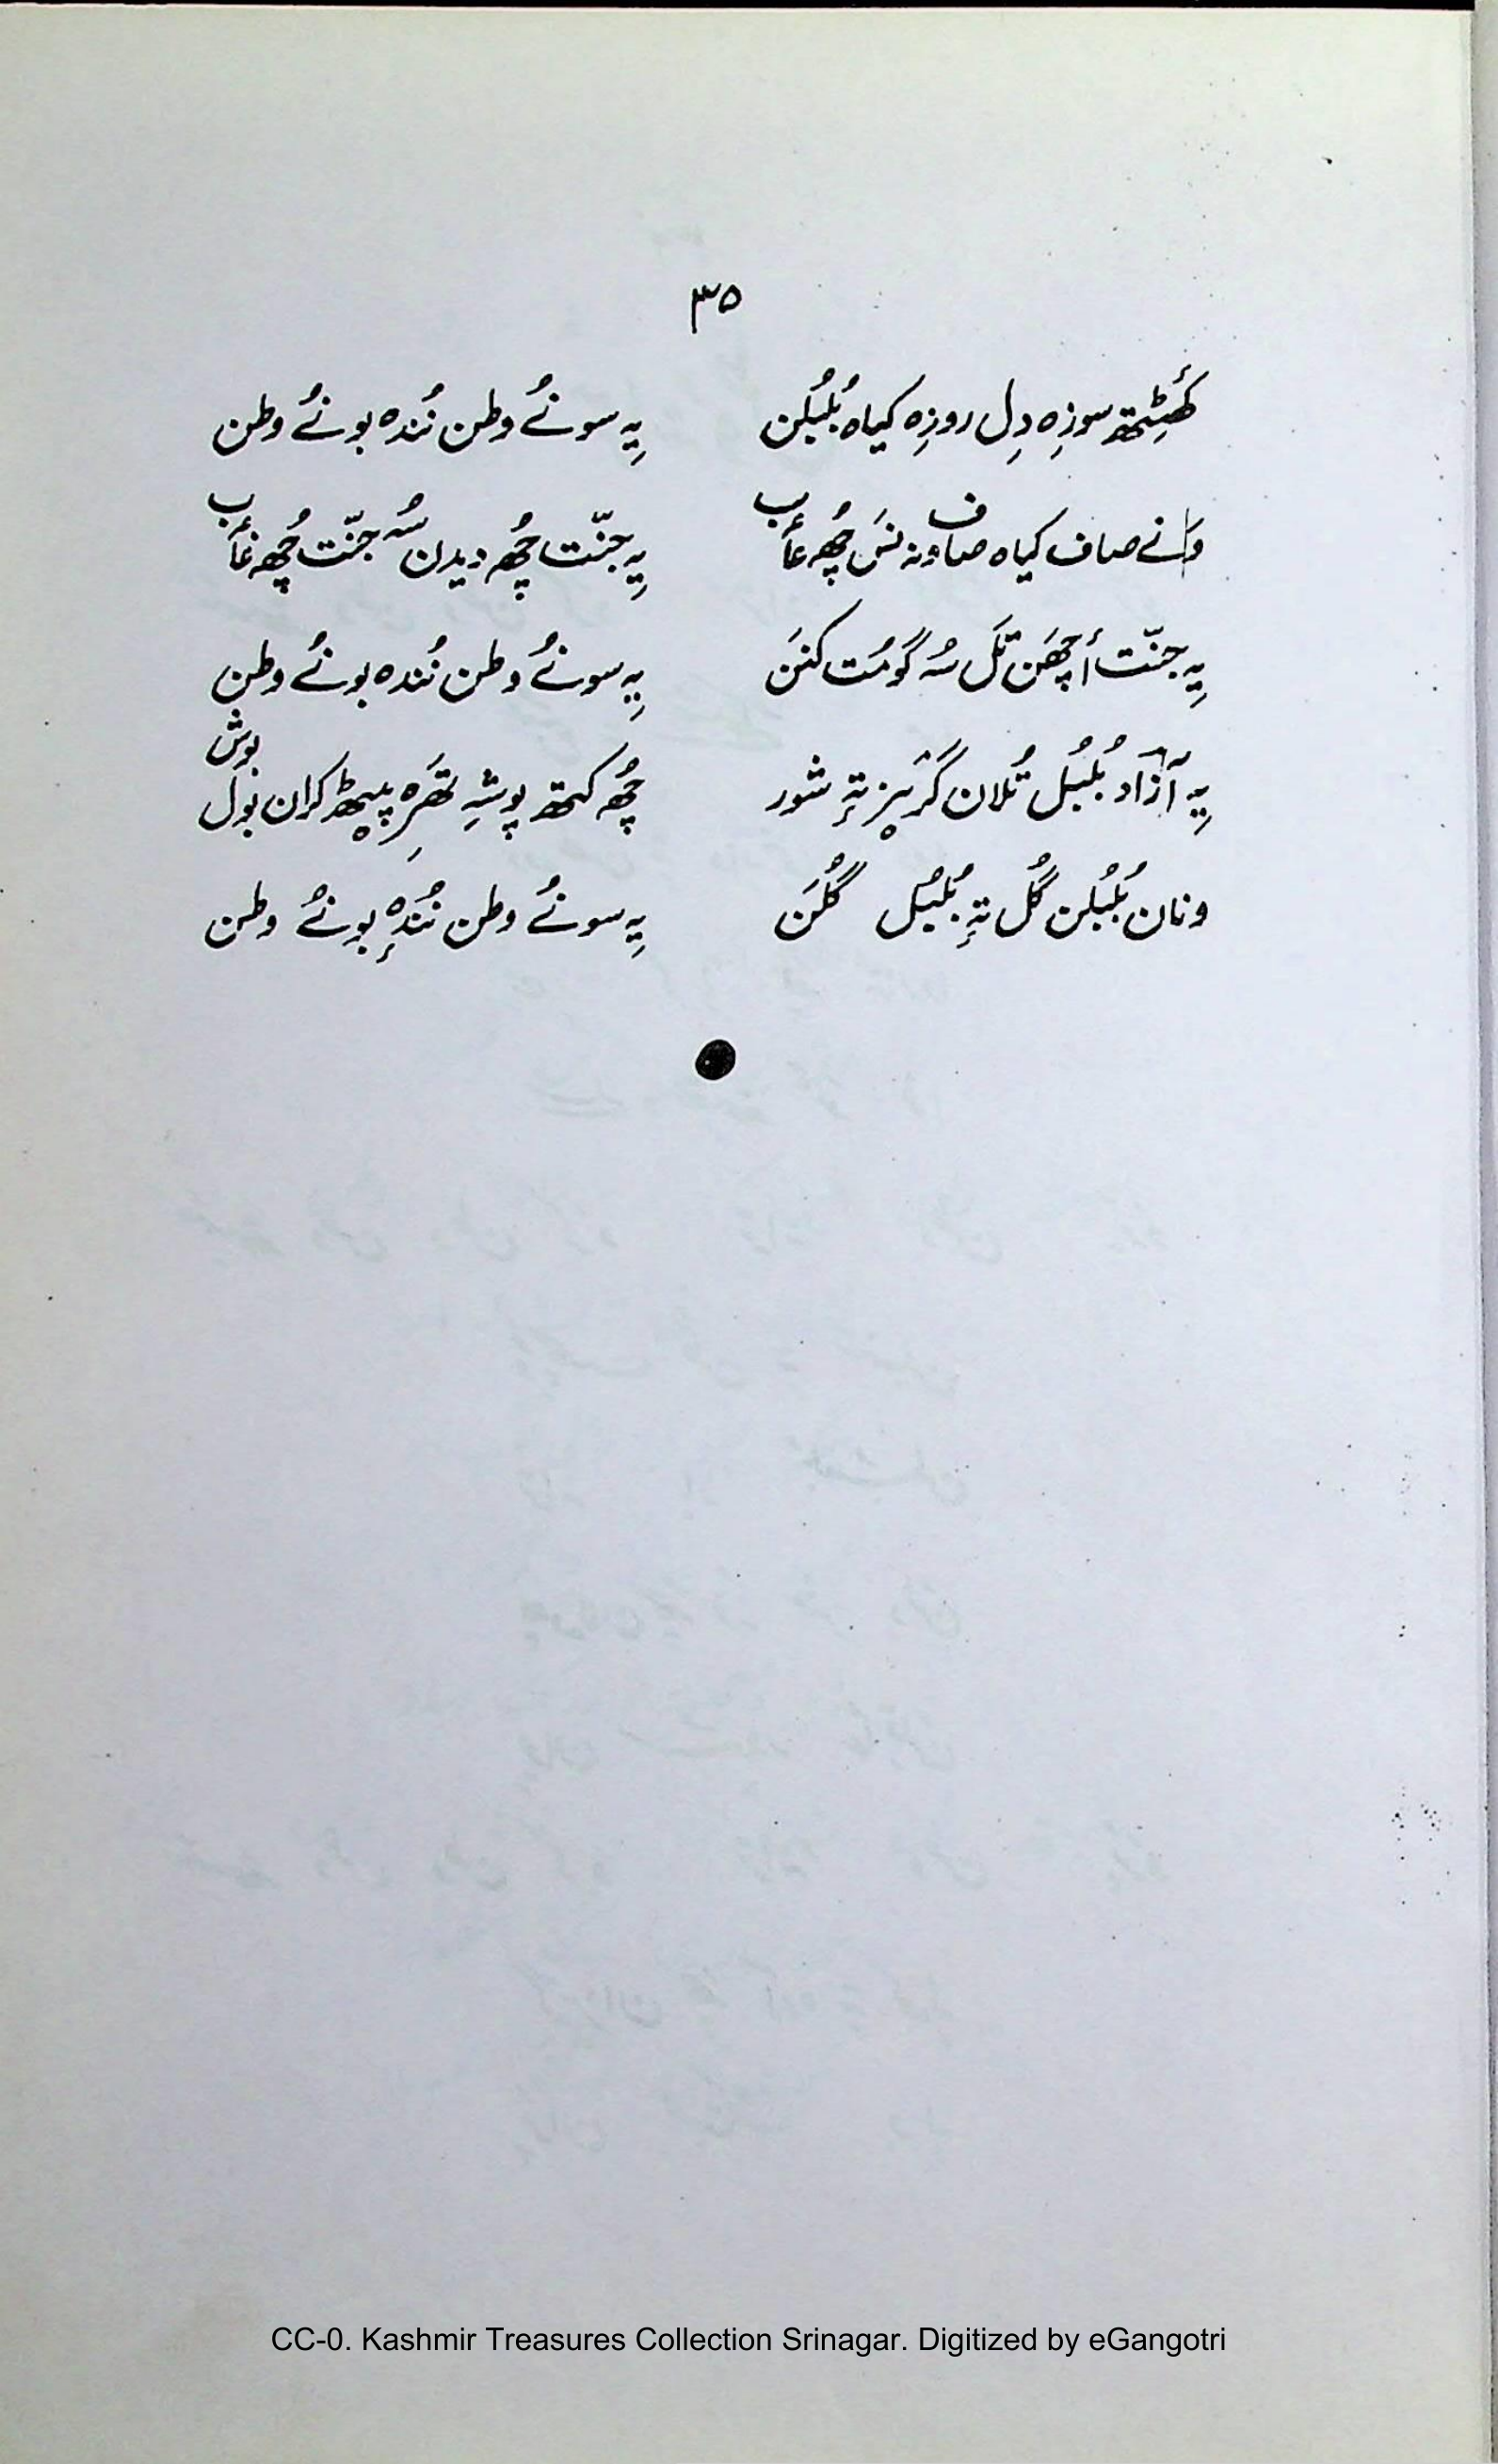 ۳۵
کھٔٹِتھ سوزِہ دِل روزِہ کیاہ بُلبُلن یِہ سونُے وطن نُندہ بونُے وطن
وَانے صاف کیاہ صاف ونہ نَس چُھ عٲب یِہ جنّت چُھ دیدن سُہ جنّت چُھ غٲب
یِہ جنّت أچھَن تَل سُہ گومُت کنَن یِہ سونُے وطن نُندہ بونُے وطن
یِہ آزاد بُلبُل تُلان گریٖز تہٕ شور چُھ کتھ پوشِہ تھَرِہ پیٖٹھ کران بول بوش
ونان بُلبُلن گُل تہٕ بُلبُل گُلَن یِہ سونُے وطن نُندہٕ بونُے وطن
CC-0. Kashmir Treasures Collection Srinagar. Digitized by eGangotri